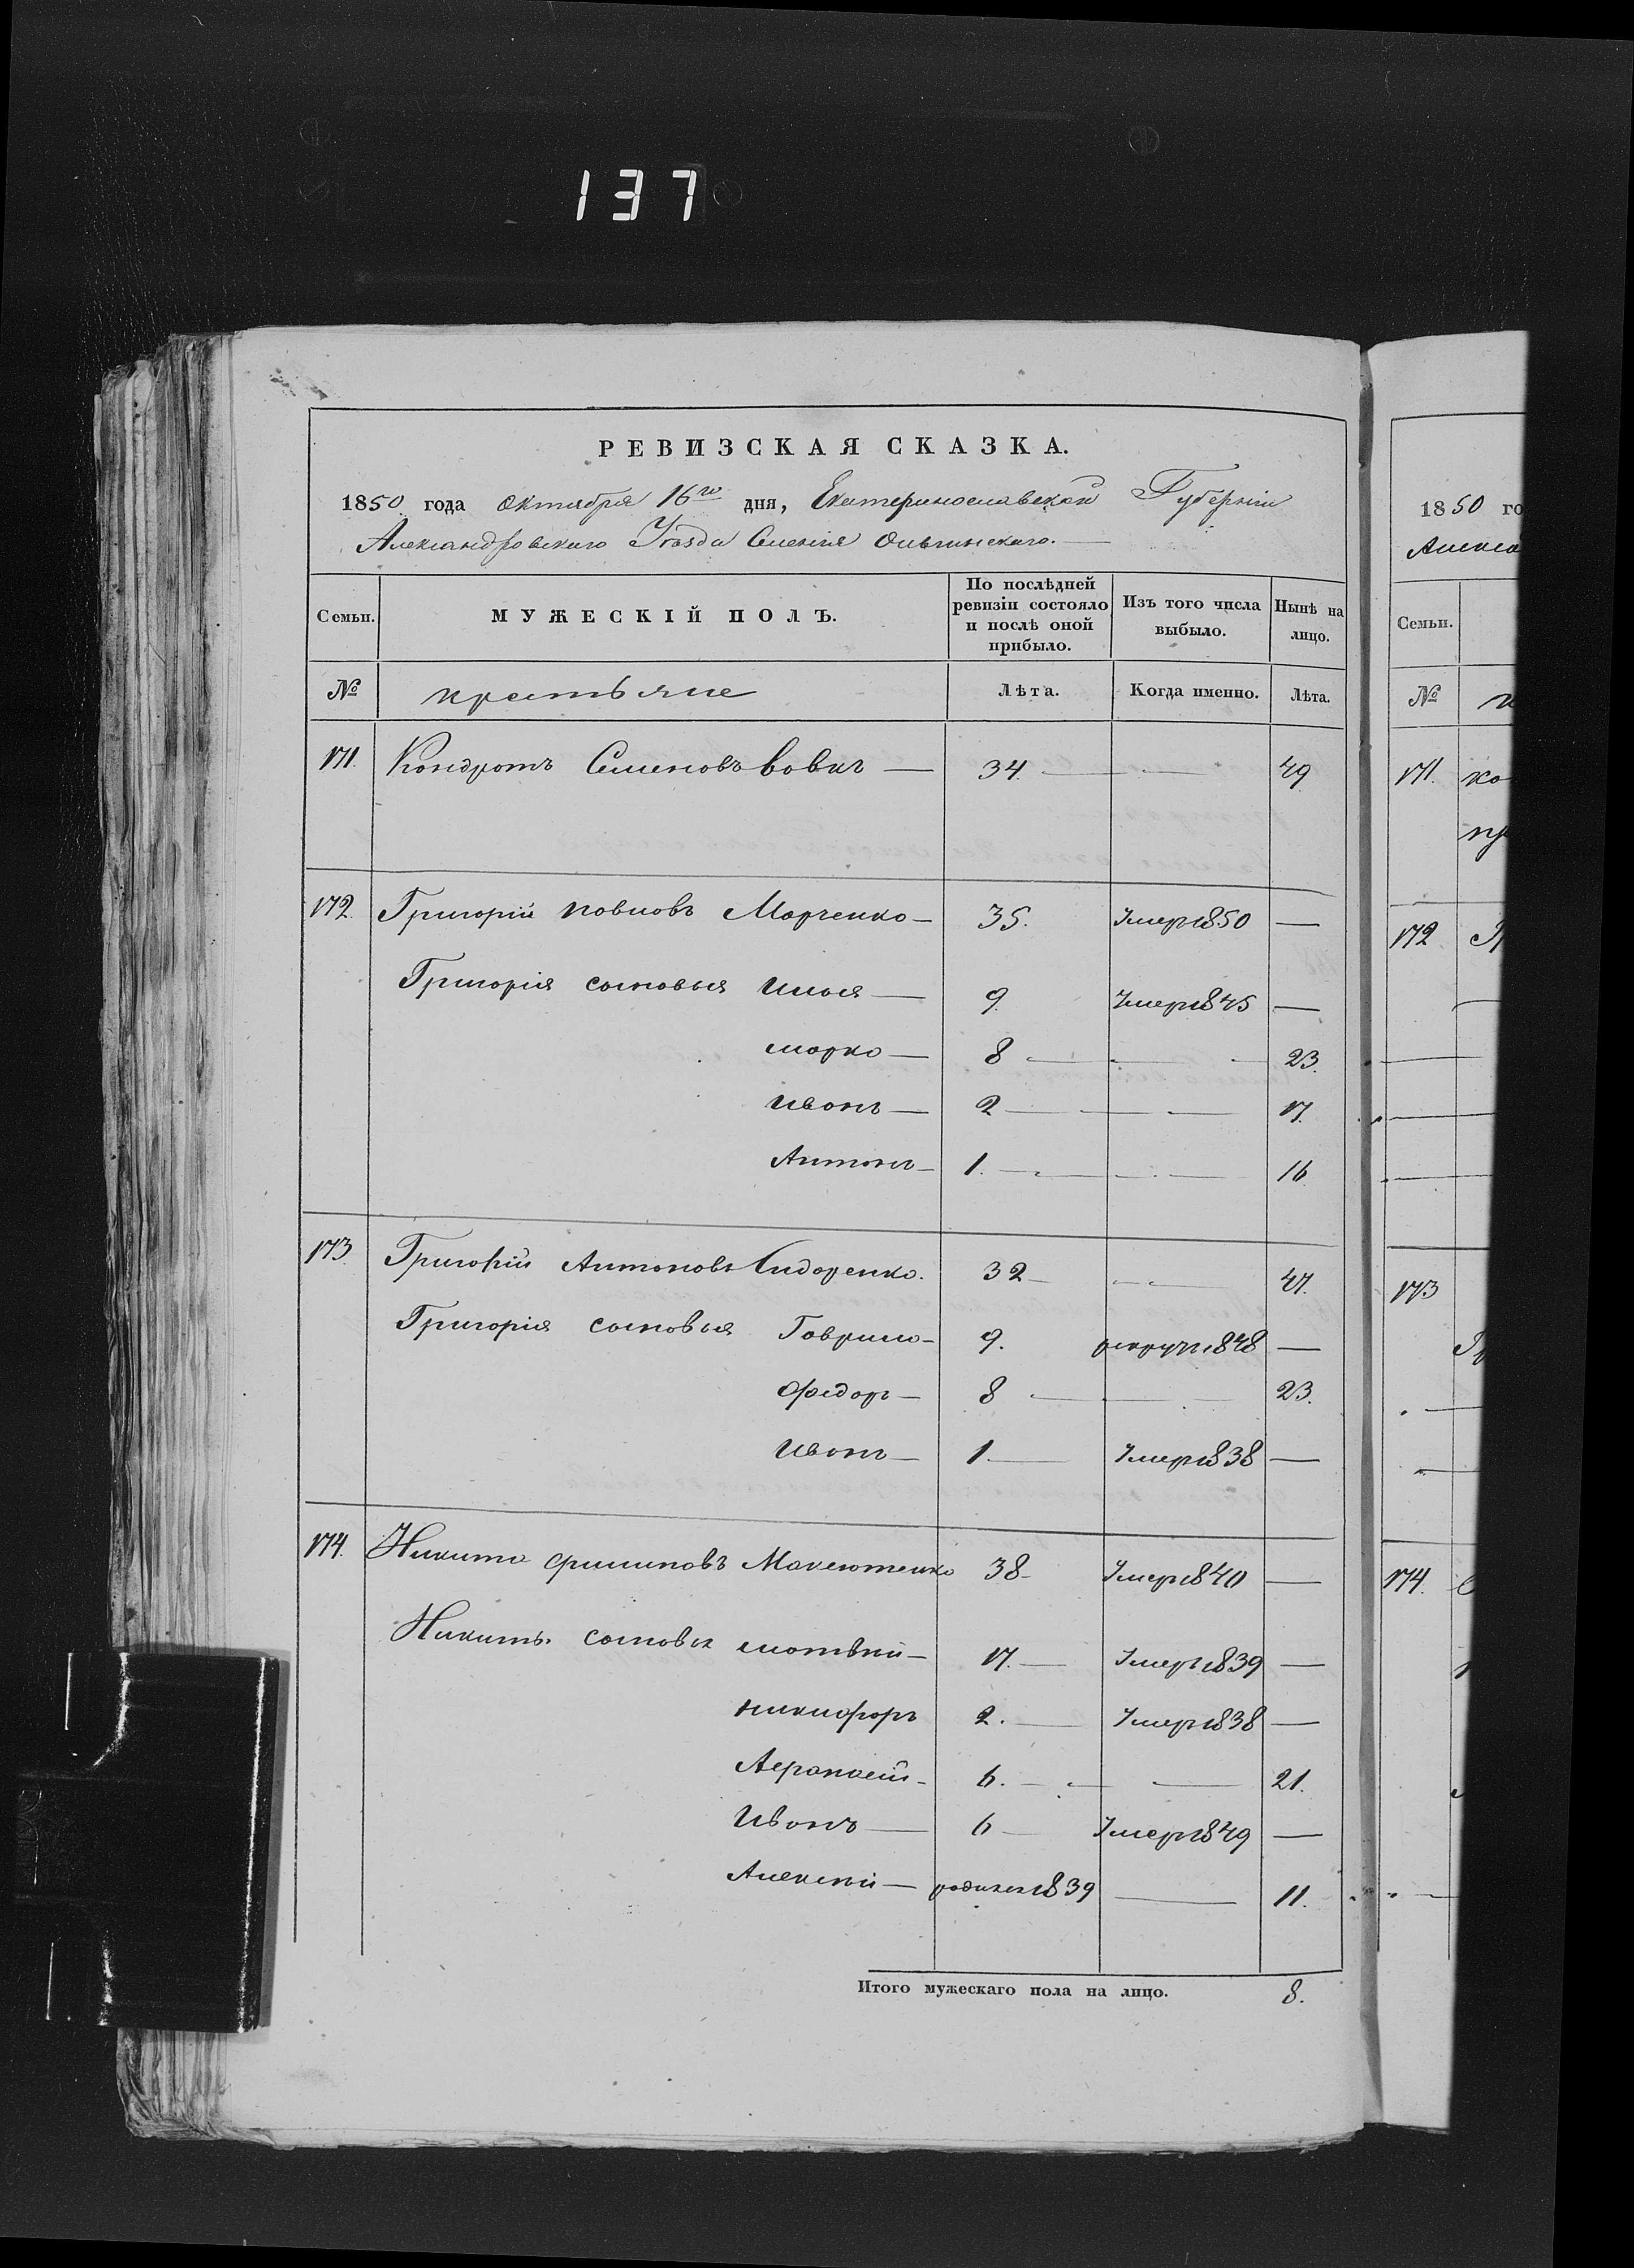 137
РЕВИЗСКАЯ СКАЗКА.
1850 года Октября 16го дня, Екатеринославской Губерніи
Александровского Уѣзда Селенія Ольгинскаго.
Семьи. МУЖЕСКІЙ ПОЛЪ. По послѣдней ревизіи состояло и послѣ оной прибыло. Изъ того числа выбыло. Нынѣ на лицо.
№ крестьяне Лѣта. Когда именно. Лѣта.
171. Кондротъ Семеновъ вовкъ — 34. — 49
172. Григорій Повловъ Марченко — 35. Умеръ 1850 —
Григорія сыновья Илья — 9. Умеръ 1845 —
Марко — 8 — 23.
Ивонъ — 2 — 17.
Антонъ — 1. — 16
173. Григорій Антоновъ Сидоренко. 32 — 47.
Григорія сыновья Говрило — 9. рекрут 1848 —
Федоръ — 8 — 23.
Ивонъ — 1 — Умеръ 1838 —
174. Никита Филиповъ Максютенко 38 — Умеръ 1840 —
Никиты сыновья Мотвѣй — 17. — Умеръ 1839 —
Никифоръ 2. — Умеръ 1838 —
6. — 21.
Ивонъ — 6 — Умеръ 1849 —
Алексѣй — родился 1839 — 11.
Итого мужескаго пола на лицо. 8.
1850 го
Алекса
Семьи.
№
171. ко
пр
172 Гр
173
Гр
174.